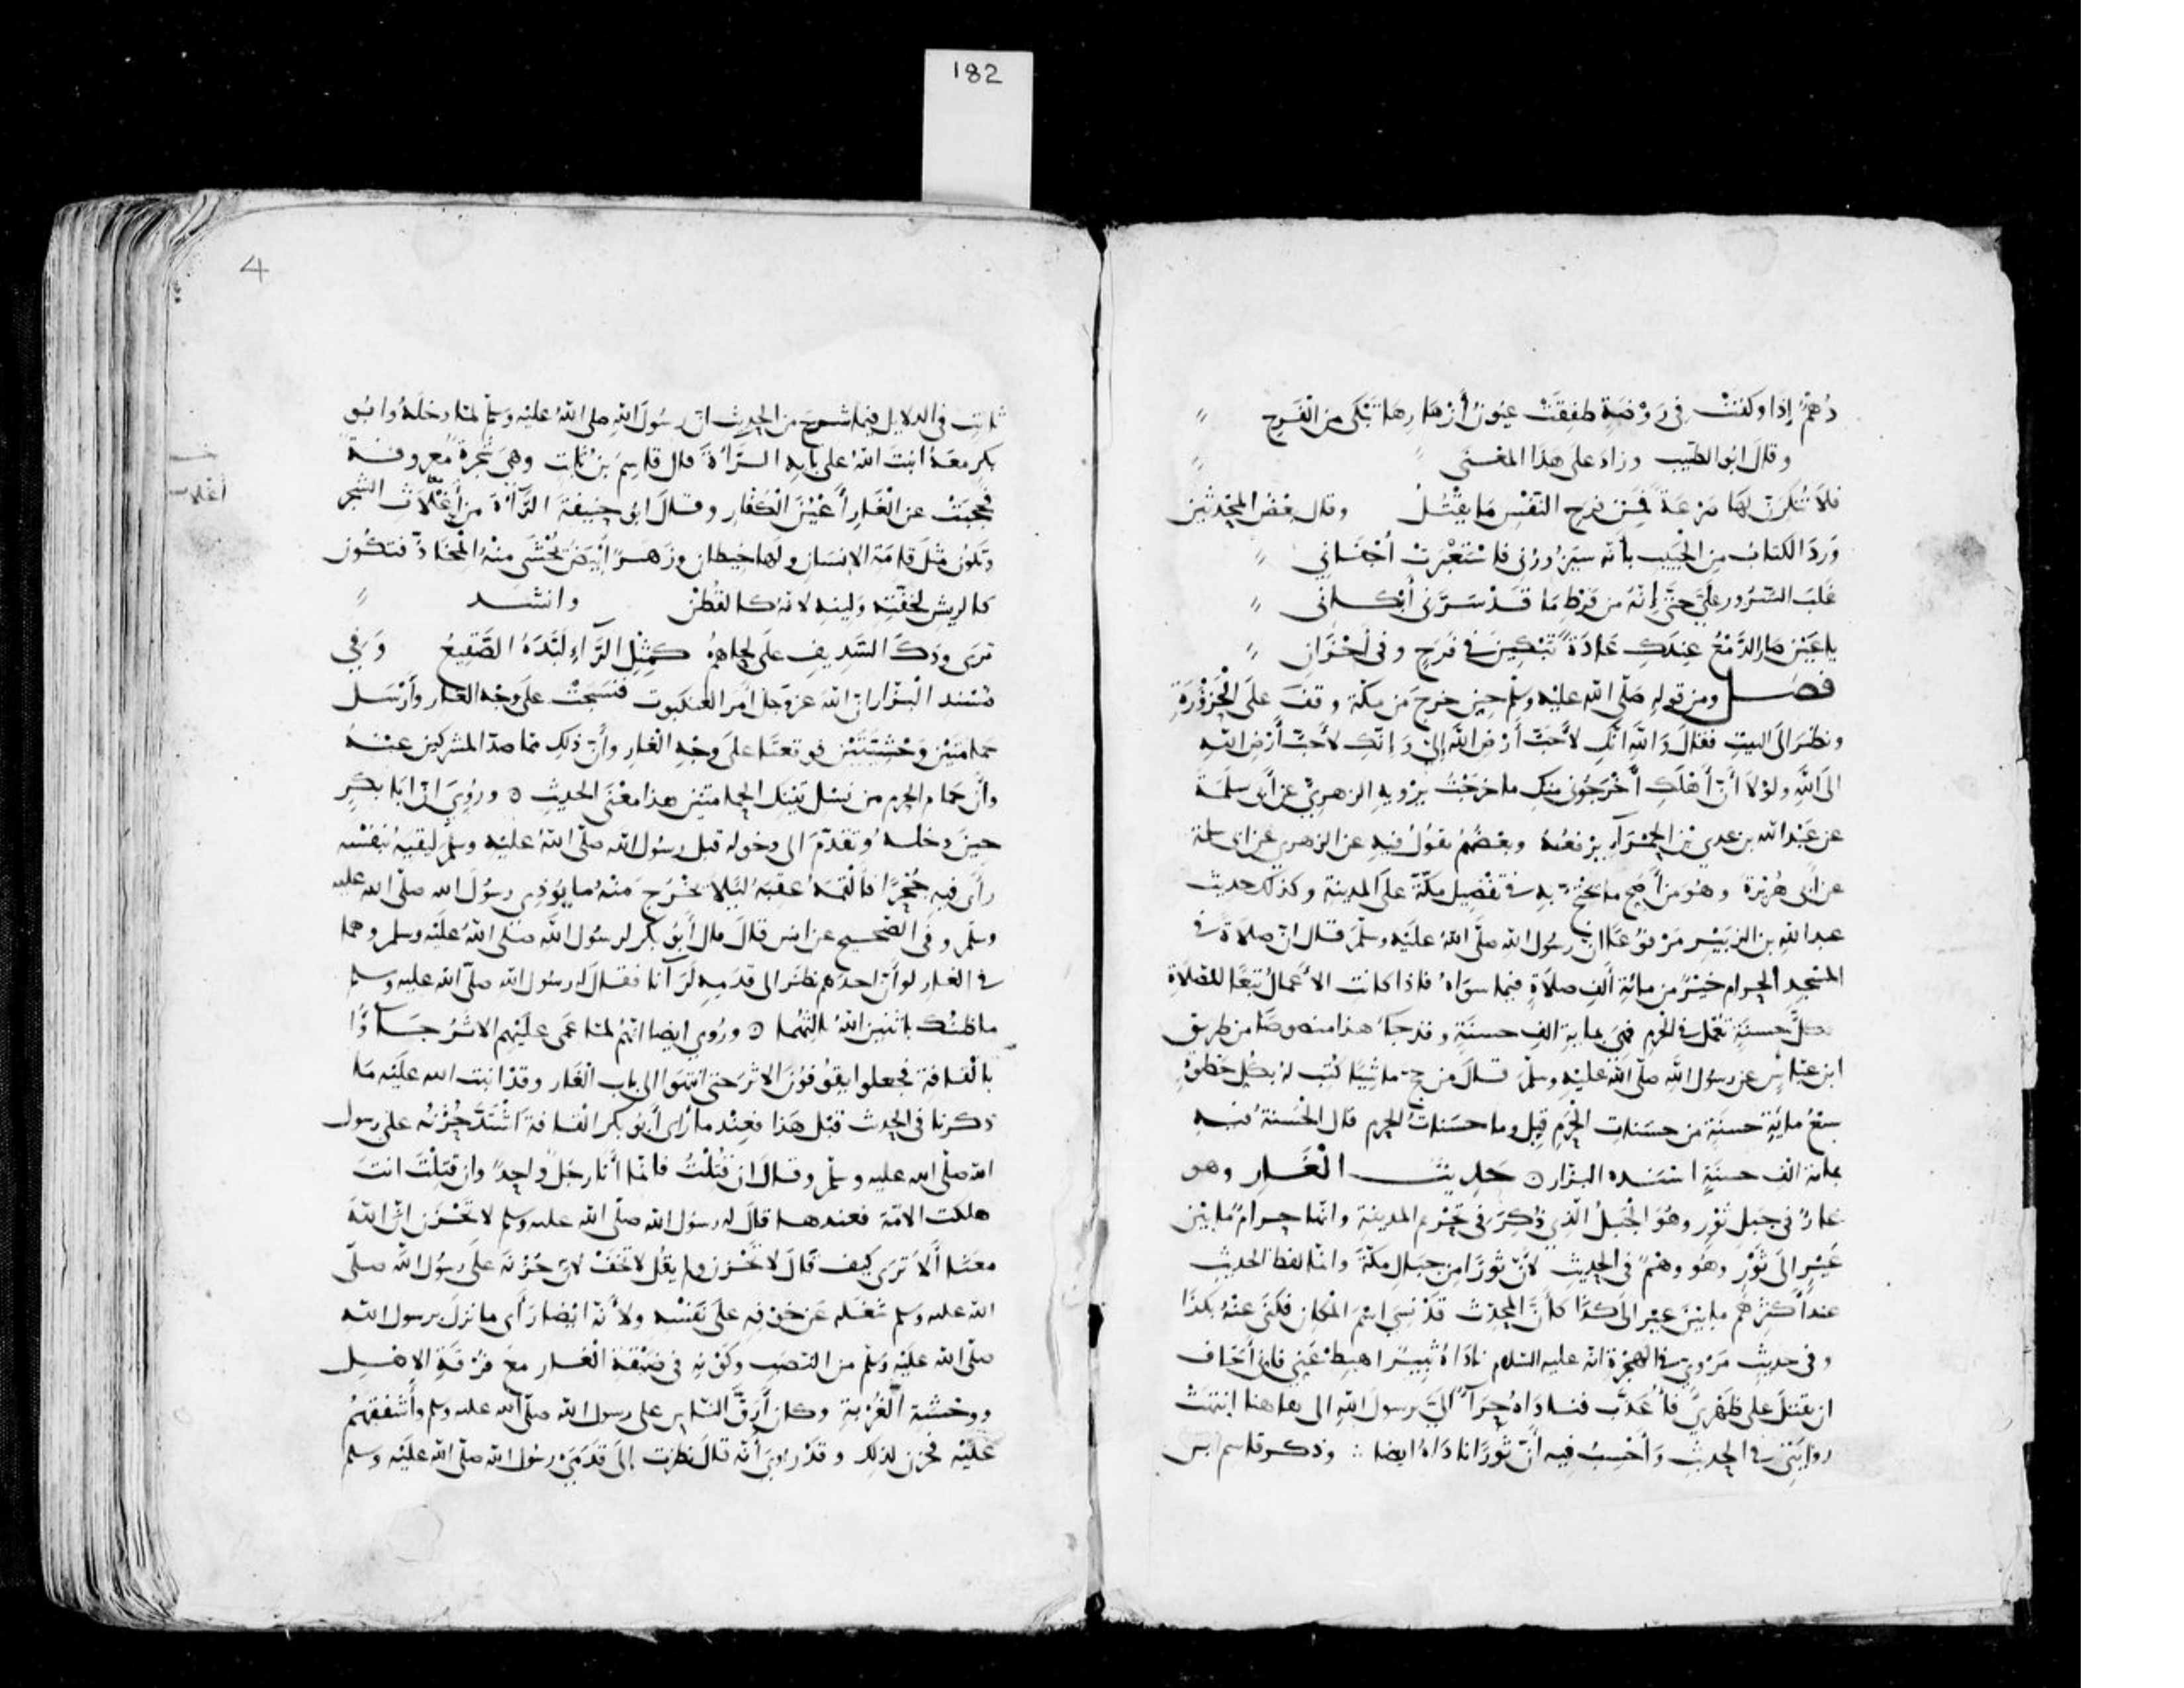 182
دُهْمٌ إِذَا وَكَفَتْ فِي رَوْضَةٍ طَفِقَتْ عُيُونُ أَزْهَارِهَا تَبْكِي مِنَ الْفَرَحِ
وقال ابو الطيب وزاد على هذا المعنى
فلا تُنكِرَنّ لها صَرْعَةً فَمِن فرح النفس ما يَقْتُلُ وقال بعض المحدثين
وَرَدَ الكتابُ مِن الحبيب بأنّه سيزورني فاستعبرت أجفاني
غلب السرور عليّ حتى إنه من فرط ما قد سرني أبكاني
يا عين صار الدمع عندكِ عادةً تبكين في فرح وفي أحزان
فصل ومن قوله صلى الله عليه وسلم حين خرج من مكة وقف على الحزورة
ونظر الى البيت فقال والله انك لأحب أرض الله إليّ وإنك لأحب أرض الله
الى الله ولولا أن أهلك أخرجوني منك ما خرجت يرويه الزهري عن أبي سلمة
عن عبد الله بن عدي بن الحمراء يرفعه وبعضهم يقول فيه عن الزهري عن ابي سلمة
عن أبي هريرة وهو من أصح ما يحتج به في تفضيل مكة على المدينة وكذلك حديث
عبد الله بن الزبير مرفوعا ان رسول الله صلى الله عليه وسلم قال ان صلاة في
المسجد الحرام خير من مائة ألف صلاة فيما سواه فاذا كانت الأعمال تبعا للصلاة
فكل حسنة تعمل في الحرم فهي بماية الف حسنة وقد جاء هذا منصوصا من طريق
ابن عباس عن رسول الله صلى الله عليه وسلم قال من حج ماشيا كتب له بكل خطوة
سبع ماية حسنة من حسنات الحرم قيل وما حسنات الحرم قال الحسنة فيه
بماية الف حسنة اسنده البزار ○ حديث الغار وهو
غار في جبل ثور وهو الجبل الذي ذكر في تحريم المدينة وانها حرام ما بين
عير الى ثور وهو وهم في الحديث لأن ثورا من جبال مكة وانما لفظ الحديث
عند أكثرهم ما بين عير الى كذا كأن المحدث قد نسي اسم المكان فكنى عنه بكذا
وفي حديث مروي في الهجرة انه عليه السلام ناداه ثبير اهبط عني فاني أخاف
ان تقتل على ظهري فأعذب فناداه حراء اليّ يرسول الله الى هاهنا انتهت
روايتي في الحديث وأحسب فيه أن ثورا ناداه ايضا ∴ وذكر قاسم بن
4
ثابت في الدلايل فيما شرح من الحديث ان رسول الله صلى الله عليه وسلم لما دخله وابو
بكر معه انبت الله على بابه الراءة قال قاسم بن ثابت وهي شجرة معروفة
فحجبت عن الغار أعين الكفار وقال ابو حنيفة الراءة من أغلاث الشجر
أغلاث
وتكون مثل قامة الانسان ولها خيطان وزهر أبيض تحشى منه المخاد فتكون
كالريش لخفته ولينه لانه كالقطن وانشد
ترى ودك السديف على لحاهم كمثل الراء لبده الصقيع وفي
مسند البزار ان الله عز وجل امر العنكبوت فنسجت على وجه الغار وأرسل
حمامتين وحشيتين فوقعتا على وجه الغار وأن ذلك مما صد المشركين عنه
وأن حمام الحرم من نسل تينك الحمامتين هذا معنى الحديث ○ وروي ان ابا بكر
حين دخله وتقدم الى دخوله قبل رسول الله صلى الله عليه وسلم ليقيه بنفسه
رأى فيه جحرا فألقمه عقبه ليلا تخرج منه ما يوذي رسول الله صلى الله عليه
وسلم وفي الصحيح عن انس قال قال أبو بكر لرسول الله صلى الله عليه وسلم وهما
في الغار لو أن احدهم نظر الى قدميه لرآنا فقال له رسول الله صلى الله عليه وسلم
ما ظنك باثنين الله ثالثهما ○ وروي ايضا انهم لما عمي عليهم الاثر جاؤا
بالقافة فجعلوا يقفون الاثر حتى انتهوا الى باب الغار وقد انبت الله عليه ما
ذكرنا في الحديث قبل هذا فعندما رأى أبو بكر القافة اشتد حزنه على رسول
الله صلى الله عليه وسلم وقال ان قتلت فانما أنا رجل واحد وان قتلت انت
هلكت الامة فعندها قال له رسول الله صلى الله عليه وسلم لا تحزن ان الله
معنا ألا ترى كيف قال لا تحزن ولم يقل لا تخف لان حزنه على رسول الله صلى
الله عليه وسلم شغله عن خوفه على نفسه ولأنه ايضا رأى ما نزل برسول الله
صلى الله عليه وسلم من النصب وكونه في ضيقة الغار مع فرقة الاهل
ووحشة الغربة وكان أرق الناس على رسول الله صلى الله عليه وسلم وأشفقهم
عليه فحزن لذلك وقد روي أنه قال نظرت إلى قدمي رسول الله صلى الله عليه وسلم